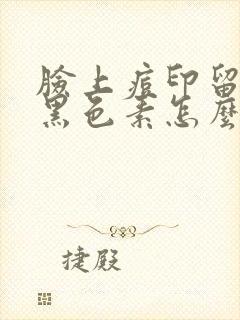 臉上痘印留
黑色素怎麼
捷殿